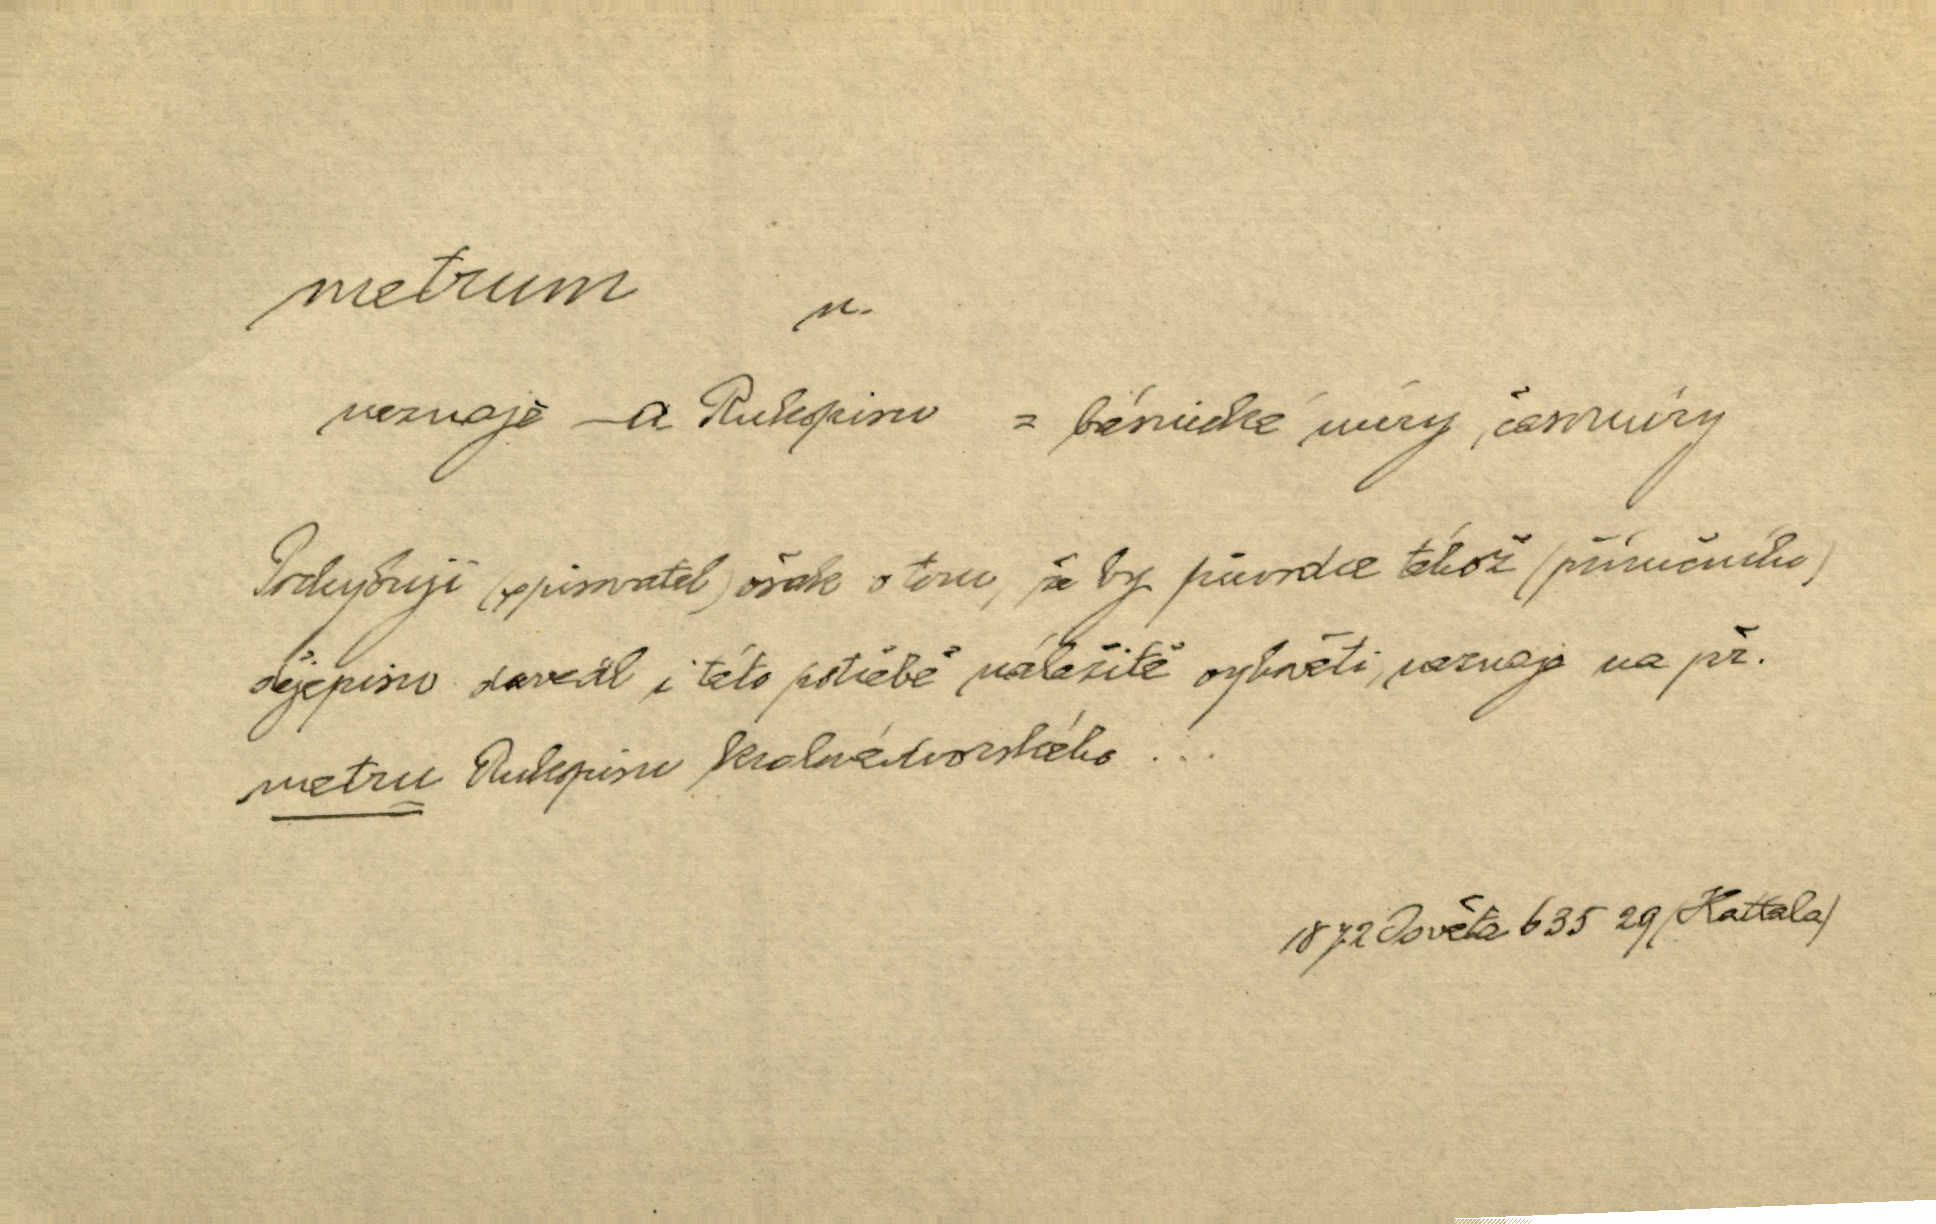 metrum n.
neznaje —a Rukopisu = básnické míry, časomíry
Pochybuji (spisovatel) však o tom, že by původce téhož (příručního)
dějepisu dovedl i této potřebě náležitě vyhověti, neznaje na př.
metru Rukopisu Kralovédvorského ...
1872 Osvěta 635 29 (Hattala)